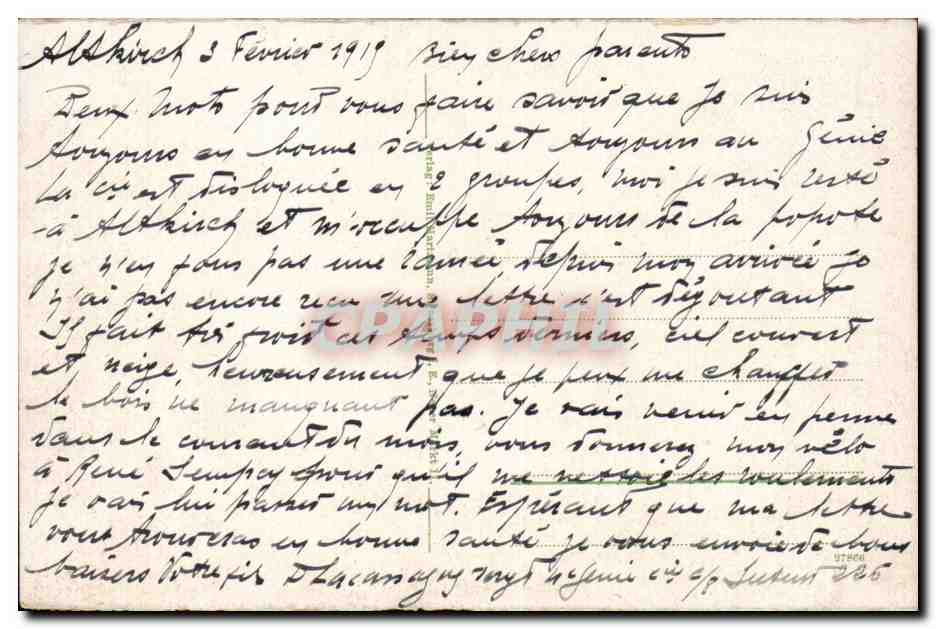 Altkirch 3 Février 1919 Bien chers parents
Deux mots pour vous faire savoir que je suis
toujours en bonne santé et toujours au Génie
La Cie est disloquée en 2 groupes, moi je suis resté
à Altkirch et m'occuppe toujours de la popote
je n'en fous pas une ramée, depuis mon arrivée Je
n'ai pas encore reçu une lettre c'est dégoutant
Il fait très froit ces temps derniers, ciel couvert
et neige, heureusement que je peux me chauffer
le bois ne manquant pas. Je vais venir en perme
dans le courant du mois, vous donnerez mon vélo
à René pour qu'il me nettoie les roulements
je vais lui passer un mot. Espérant que ma lettre
vous trouveras en bonne santé je vous envoie de bons
baisers Votre fils Génie Cie 226
CPAPHIL
27866